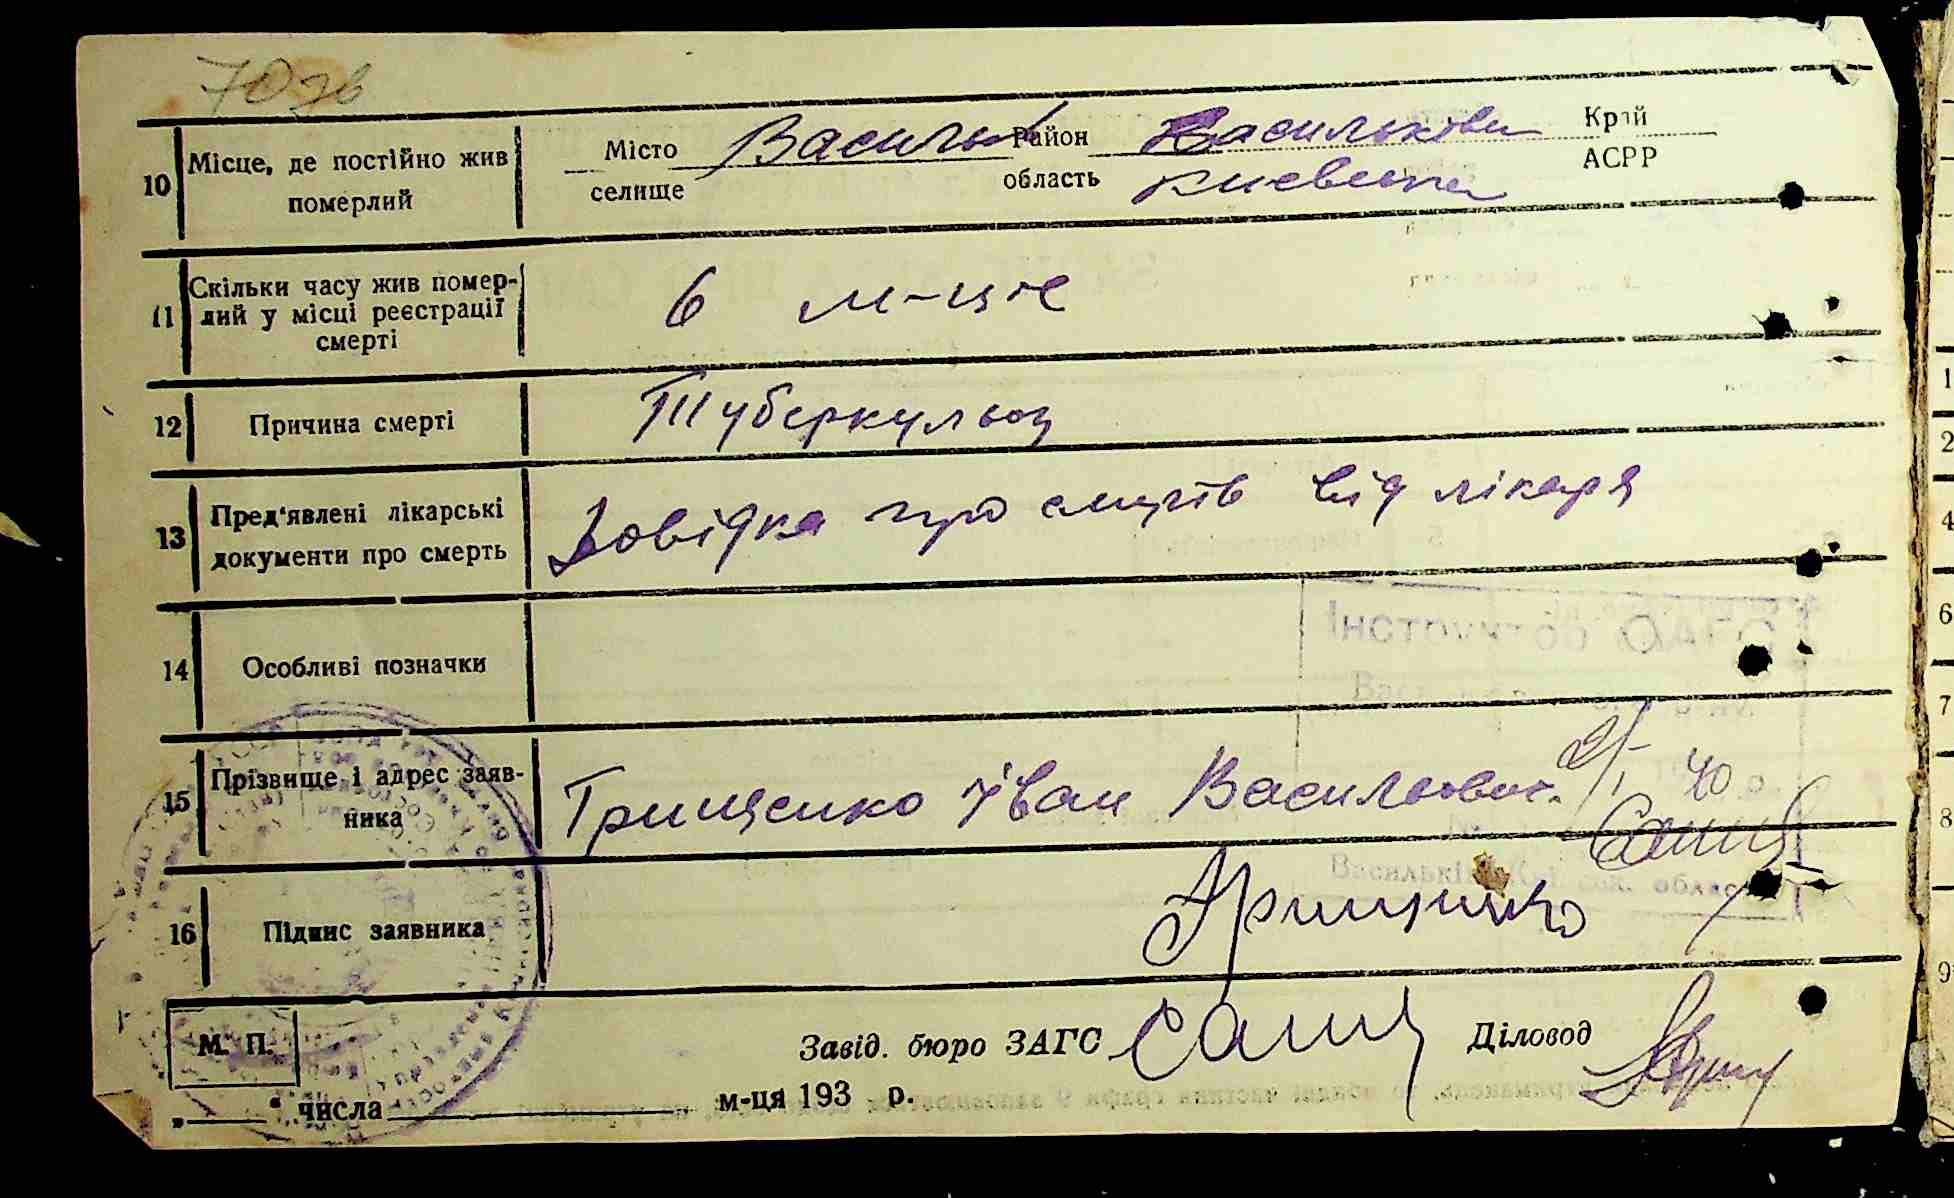 10 Місце, де постійно жив померлий
Місто Васильк Район Васильківськ Край
селище область Київська АСРР
11 Скільки часу жив помер-
лий у місці реєстрації
смерті
6 м-ців
12 Причина смерті Туберкульоз
13 Пред'явлені лікарські
документи про смерть
Довідка про смерть від лікаря
14 Особливі позначки
15 Прізвище і адрес заяв-
ника
Грищенко Іван Васильович.
40
16 Підпис заявника Грищенко
М. П. Завід. бюро ЗАГС Діловод
„ " числа м-ця 193 р.